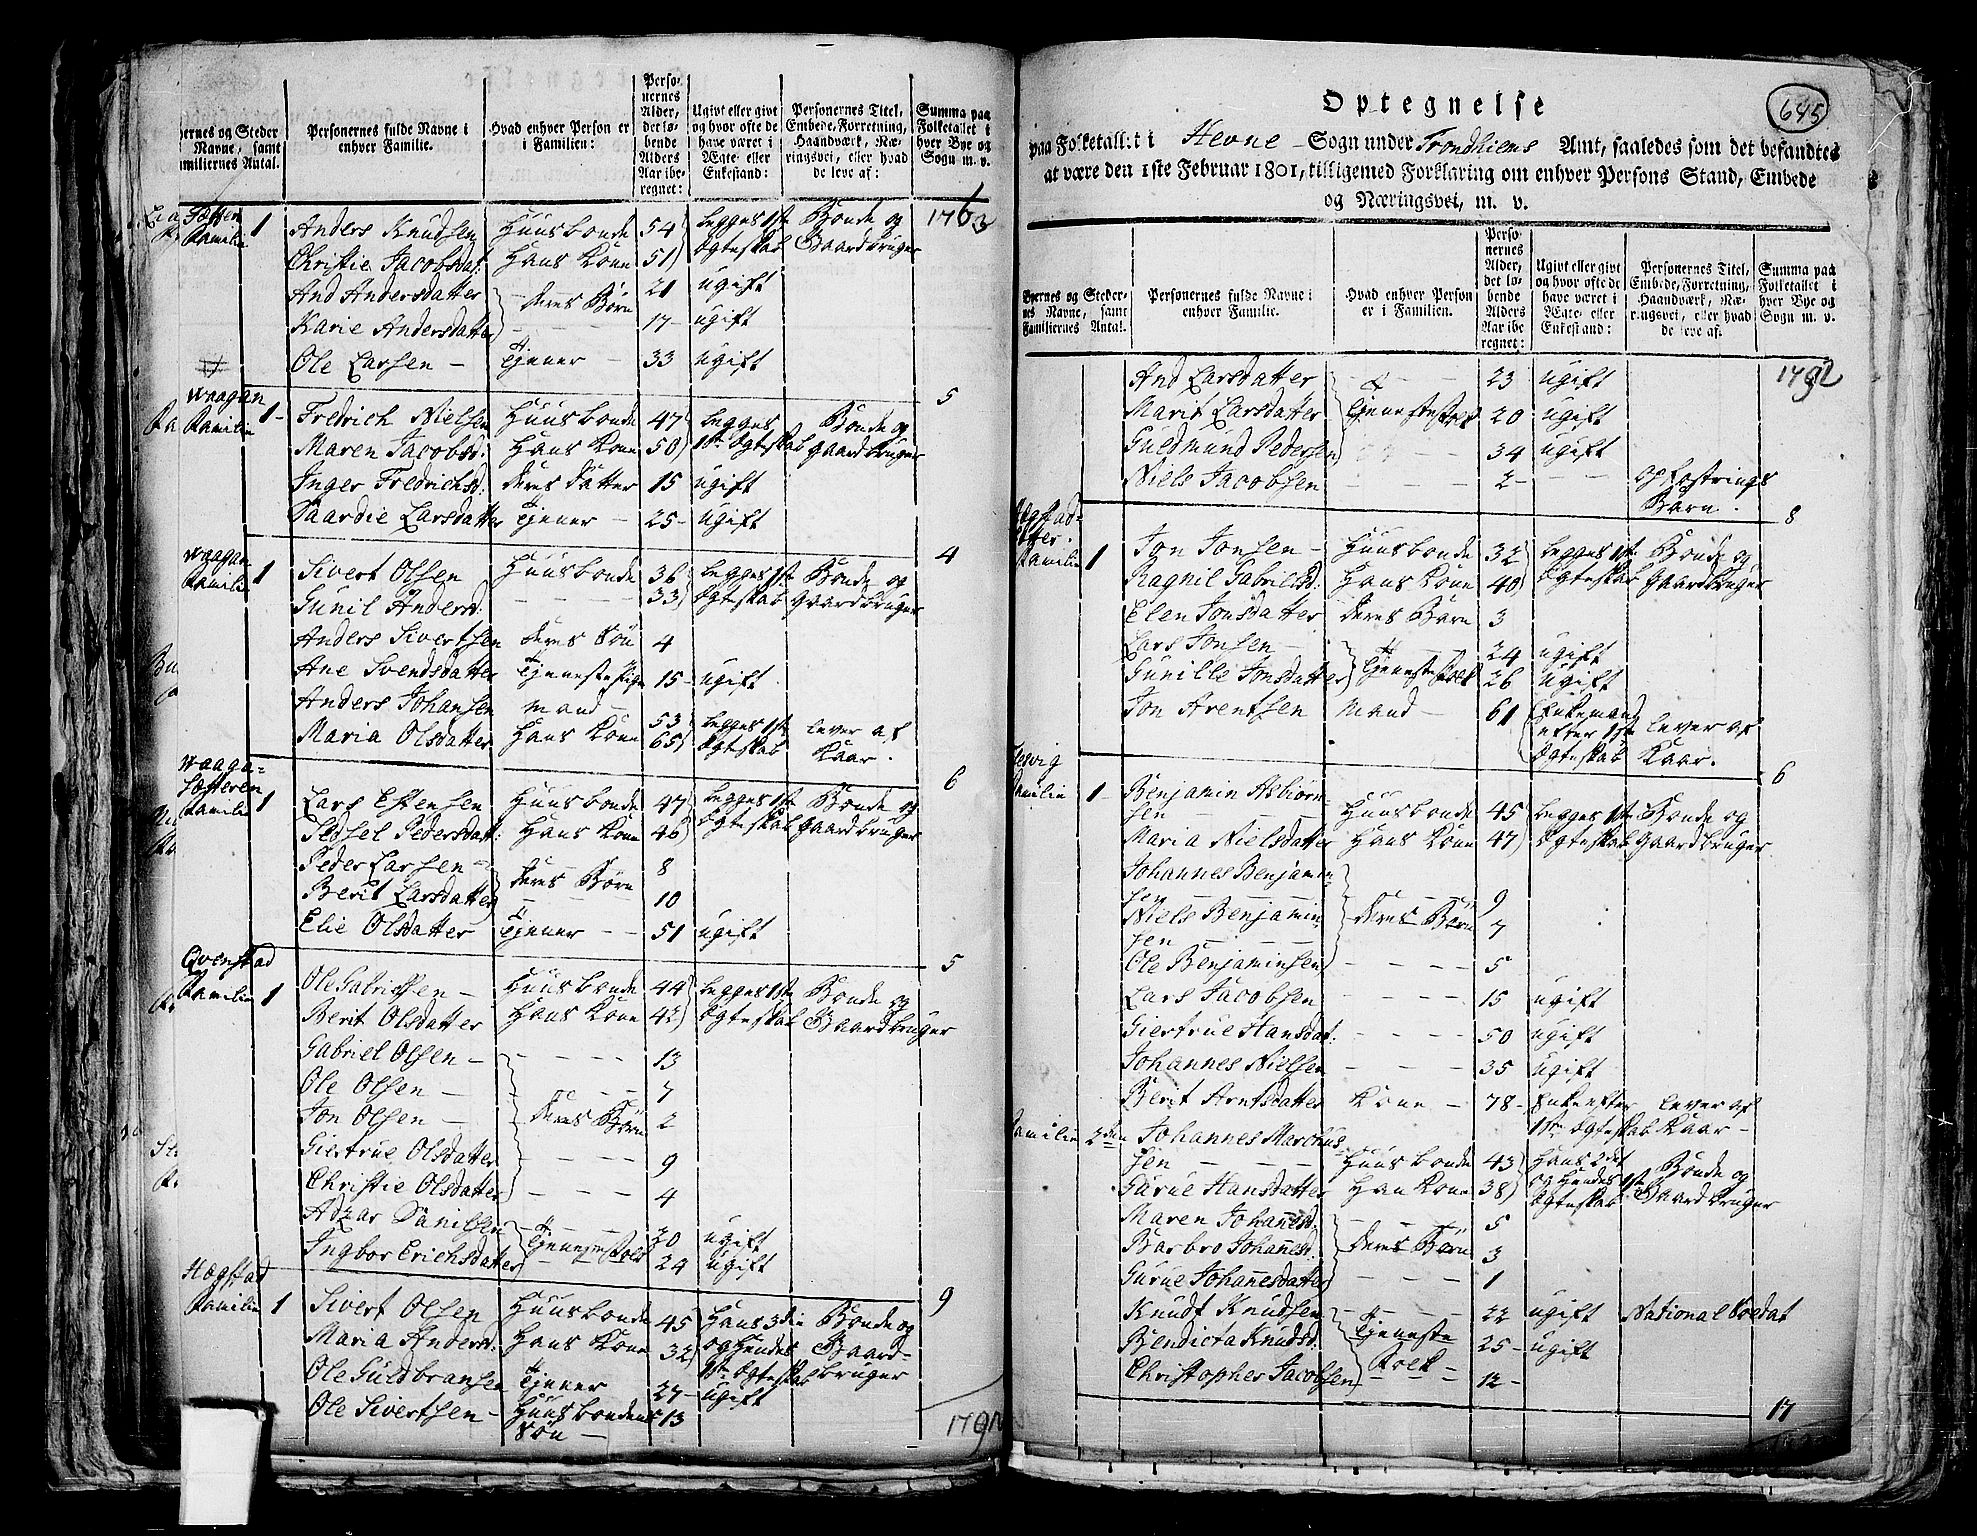 ernes og Steder
Navne, samt
miliernes Antal.
Personernes fulde Navne i
enhver Familie.
Hvad enhver Person er
i Familien:
Perso-
nernes
Alder,
det lø-
bende
Alders
Aar ibe-
regnet:
Ugivt eller givt
og hvor ofte de
have været i
Ægte- eller
Enkestand:
Personernes Titel,
Embede, Forretning,
Haandværk, Næ-
ringsvei, eller hvad
de leve af:
Summa paa
Folketallet i
hver Bye og
Sogn m. v.
1763
Sætter
Familie 1 Anders Knudsen Huusbonde 54 begges 1ste Bonde og
Christie Jacobsdat: Hans Kone 51 Ægteskab Gaardbruger
And Andersdatter deres Børn 21 ugift
Karie Andersdatter 17 ugift
Ole Larsen Tjener 33 ugift
5
Waagan
Familie 1 Fredrich Nielsen Huusbonde 47 begges Bonde og
Maren Jacobsd: Hans Kone 50 1ste Ægteskab gaardbruger
Inger Fredrichsd: deres Datter 15 ugift
Taardie Larsdatter Tjener 25 ugift
4
Waagan
Familie 1 Sivert Olsen Huusbonde 36 begges 1ste Bonde og
Gunil Andersd: 33 Ægteskab Gaardbruger
Anders Sivertsen deres Søn 4
Ane Svendsdatter Tjenestepige 15 ugift
Anders Johansen mand 53 begges 1ste lever af
Maria Olsdatter Hans Kone 65 Ægteskab Kaar.
6
Waaga-
Sæteren
Familie 1 Lars Estensen Huusbonde 47 begges 1ste Bonde og
Sidsel Pedersdat: Hans Kone 46 Ægteskab Gaardbruger
Peder Larsen 8
Berit Larsdatter deres Børn 10
Elie Olsdatter Tjener 51 ugift
5
Qvenstad
Familie 1 Ole Gabrielsen Huusbonde 44 begges 1ste Bonde og
Berit Olsdatter Hans Kone 42 Ægteskab Gaardbruger
Gabriel Olsen 13
Ole Olsen 7
Jon Olsen deres Børn 2
Giertrue Olsdatter 9
Christie Olsdatter 4
Danilsen Tjenestefolk 20 ugift
Ingbor Erichsdatter 24 ugift
9
Hægstad
Familie 1 Sivert Olsen Huusbonde 45 Hans 3die Bonde og
Maria Andersd: Hans Kone 32 og hendes Gaard-
Ole Guldbransen Tjener 27 1ste Ægteskab bruger
ugift
Ole Sivertsen Huusbondens 13
Søn
1792
645
Optegnelse
paa Folketallet i Hevne Sogn under Trondhiems Amt, saaledes som det befandtes
at være den 1ste Februar 1801, tilligemed Forklaring om enhver Persons Stand, Embede
og Næringsvei, m. v.
Byernes og Steder-
nes Navne, samt
Familiernes Antal.
Personernes fulde Navne i
enhver Familie.
Hvad enhver Person
er i Familien.
Perso-
nernes
Alder,
det lø-
bende
Alders
Aar ibe-
regnet:
Ugivt eller givt
og hvor ofte de
have været i
Ægte- eller
Enkestand:
Personernes Titel,
Embede, Forretning,
Haandværk, Næ-
ringsvei, eller hvad
de leve af.
Summa paa
Folketallet i
hver Bye og
Sogn m. v.
1792
And Larsdatter 23 ugift
Marit Larsdatter Tjenestefolk 20 ugift
Guldmund Pedersen 34 ugift
Niels Jacobsen 2 opfostrings
Barn.
8
Hægstad-
Familie 1 Jon Jonsen Huusbonde 32 begges 1ste Bonde og
Ragnil Gabrielsd: Hans Kone 40 Ægteskab Gaardbruger
Elen Jonsdatter deres Barn 3
Lars Jonsen 24 ugift
Gunille Jonsdatter Tjenestefolk 26 ugift
Jon Arentsen mand 61 Enkemand
efter 1ste lever af
Ægteskab Kaar.
6
Familie 1 Benjamin Asbiørn-
sen Huusbonde 45 begges 1ste Bonde og
Maria Nielsdatter Hans Kone 47 Ægteskab Gaardbruger
Johannes Benjamin-
sen 9
Niels Benjamin- deres Børn 7
sen
Ole Benjaminsen 5
Lars Jacobsen 15 ugift
Giertrue Hansdat: 50 ugift
Johannes Nielsen 35 ugift
Berit Arntsdatter Kone 78 Enke efter lever af
1ste Ægteskab Kaar
Familie 2den Johannes Marchus-
sen Huusbonde 43 Hans 2det Bonde og
Gurue Hansdatter Han Kone 38 og Hendes 1ste Gaardbruger
Ægteskab
Maren Johansd: 5
Barbro Johanesd: deres Børn 3
Gurue Johanesdatter 1
Knudt Knudsen 22 ugift National Soldat
Bendicta Knudsd: Tjeneste 25 ugift
Christopher Jacobsen Folk 12
17